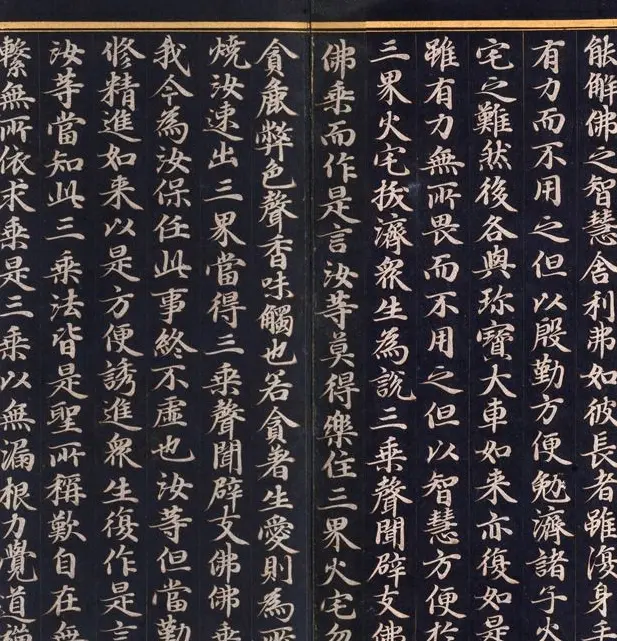 能解佛之智慧舍利弗如彼長者雖復身手
有力而不用之但以殷勤方便勉濟諸子火
宅之難然後各與珎寶大車如来亦復如是
雖有力無所畏而不用之但以智慧方便於
三界火宅拔濟衆生為說三乗聲聞辟支佛
佛乗而作是言汝等莫得樂住三界火宅勿
貪麁弊色聲香味觸也若貪著生愛則為所
燒汝速出三界當得三乗聲聞辟支佛佛乗
我今為汝保任此事終不虛也汝等但當勤
修精進如来以是方便誘進衆生復作是言
汝等當知此三乗法皆是聖所稱歎自在無
繫無所依求乗是三乗以無漏根力覺道禪